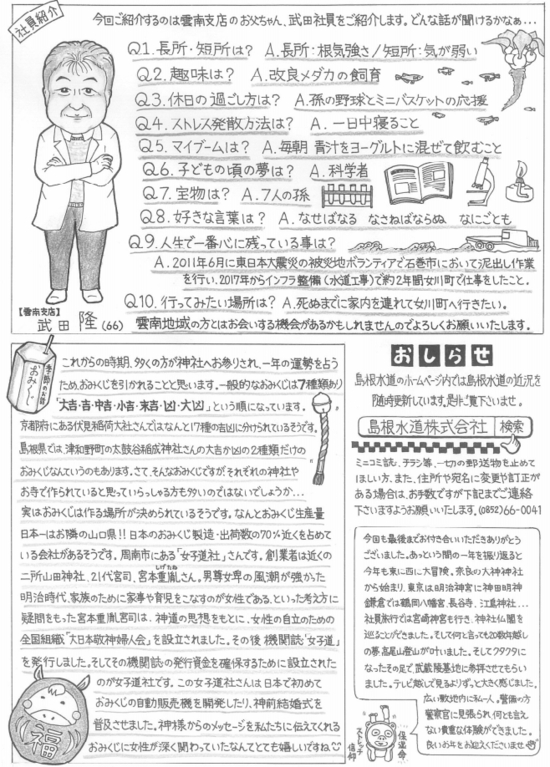 社員紹介
今回ご紹介するのは雲南支店のお父ちゃん、武田社員をご紹介します。どんな話が聞けるかなぁ…
Q1.長所・短所は? A.長所:根気強さ/短所:気が弱い
Q2.趣味は? A.改良メダカの飼育
Q3.休日の過ごし方は? A.孫の野球とミニバスケットの応援
Q4.ストレス発散方法は? A.一日中寝ること
Q5.マイブームは? A.毎朝 青汁をヨーグルトに混ぜて飲むこと
Q6.子どもの頃の夢は? A.科学者
Q7.宝物は? A.7人の孫
Q8.好きな言葉は? A.なせばなる なさねばならぬ なにごとも
Q9.人生で一番心に残っている事は?
A.2011年6月に東日本大震災の被災地ボランティアで石巻市において泥出し作業
を行い、2017年からインフラ整備(水道工事)で約2年間女川町で仕事をしたこと。
Q10.行ってみたい場所は? A.死ぬまでに家内を連れて女川町へ行きたい。
【雲南支店】
武田 隆(66)
雲南地域の方とはお会いする機会があるかもしれませんのでよろしくお願いいたします。
季節のお話
おみくじ
これからの時期、多くの方が神社へお参りされ、一年の運勢を占う
ため、おみくじを引かれることと思います。一般的なおみくじは7種類あり
「大吉・吉・中吉・小吉・末吉・凶・大凶」という順になっています。
京都府にある伏見稲荷大社さんではなんと17種の吉凶に分けられているそうです。
島根県では津和野町の太鼓谷稲成神社さんの大吉か凶の2種類だけの
おみくじなんていうのもあります。さて、そんなおみくじですがそれぞれの神社や
お寺で作られていると思っていらっしゃる方も多いのではないでしょうか…
実はおみくじは作る場所が決められているそうです。なんとおみくじ生産量
日本一はお隣の山口県!!日本のおみくじ製造・出荷数の70%近くを占めて
いる会社があるそうです。周南市にある「女子道社」さんです。創業者は近くの
二所山田神社、21代宮司、宮本重胤さん。男尊女卑の風潮が強かった
しげたね
明治時代、家族のために家事や育児をこなすのが女性である、といった考え方に
疑問をもった宮本重胤宮司は、神道の思想をもとに、女性の自立のための
全国組織「大日本敬神婦人会」を設立されました。その後 機関誌「女子道」
を発行しました。そしてその機関誌の発行資金を確保するために設立された
のが女子道社です。この女子道社さんは日本で初めて
おみくじの自動販売機を開発したり、神前結婚式を
普及させました。神様からのメッセージを私たちに伝えてくれる
おみくじに女性が深く関わっていたなんてとても嬉しいですね
福
おしらせ
島根水道のホームページ内では島根水道の近況を
随時更新しています。是非ご覧下さいませ。
島根水道株式会社 検索
ミニコミ誌、チラシ等、一切の郵送物を止めて
ほしい方、また、住所や宛名に変更や訂正が
ある場合は、お手数ですが下記までご連絡
下さいますようお願いいたします。(0852)66-0041
今回も最後までお付き合いいただきありがとう
ございました。あっという間の一年を振り返ると
今年も東に西に大冒険。奈良の大神神社
から始まり、東京は明治神宮に神田明神
鎌倉では鶴岡八幡宮、長谷寺、江島神社…
社員旅行では宮崎神宮も行き、神社仏閣を
巡ることができました。そして何と言っても20数年越し
の夢高尾山登山が叶いました。そしてクタクタに
なったその足で武蔵陵墓地に参拝させてもらい
ました。テレビ越しで見るよりずっと大きく感じました。
広い敷地内に私一人。警備の方
警察官に見張られ、何とも言え
ない貴重な体験ができました。
良いお年をお迎えくださいませ
ストレッチ